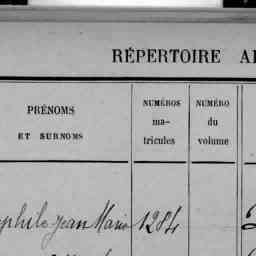 RÉPERTOIRE
PRÉNOMS
ET SURNOMS
NUMÉROS
ma-
tricules
NUMÉRO
du
volume
Jean Marie 1284